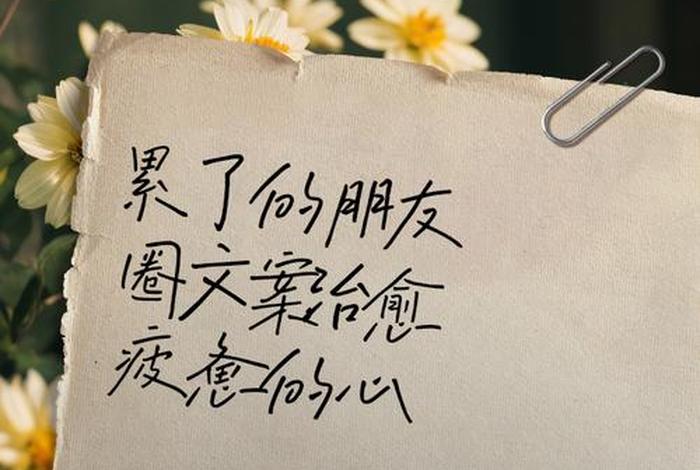 累了的朋友
圈文案治愈
疲惫的心